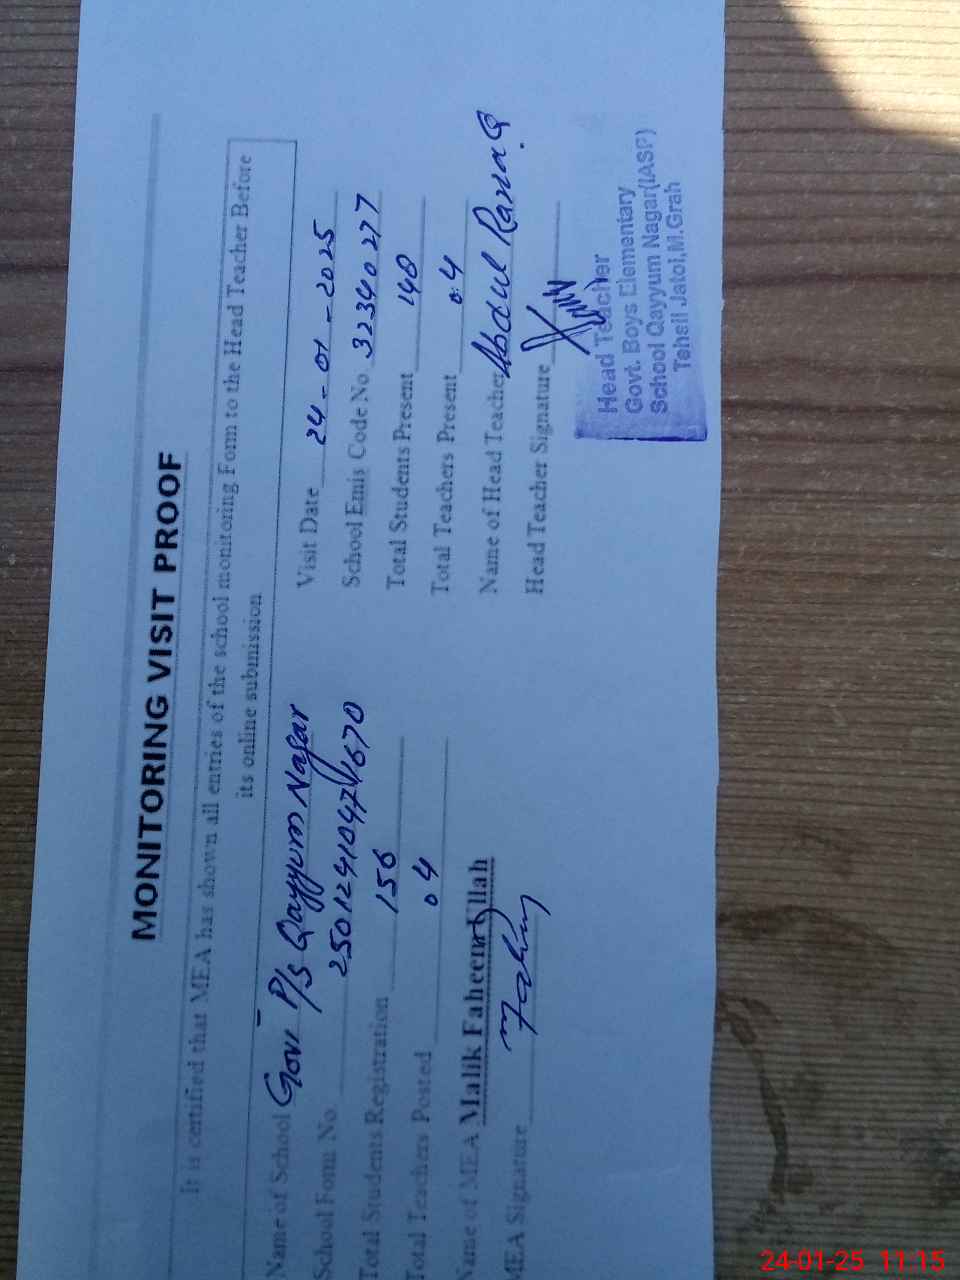 MONITORING VISIT PROOF
It is certified that MEA has shown all entries of the school monitoring Form to the Head Teacher Before
its online submission
Name of School Govt P/S Qayyum Nagar
Visit Date 24-01-2025
School Form No.
School Emis Code No. 32340277
Total Students Registration 156
Total Students Present 148
Total Teachers Posted 04
Total Teachers Present 04
Name of MEA Malik Faheem Ullah
Name of Head Teacher Abdul Razaq
MEA Signature
Head Teacher Signature
Head Teacher
Govt. Boys Elementary
School Qayyum Nagar(IASP)
Tehsil Jatoi,M.Grah
24-01-25 11:15